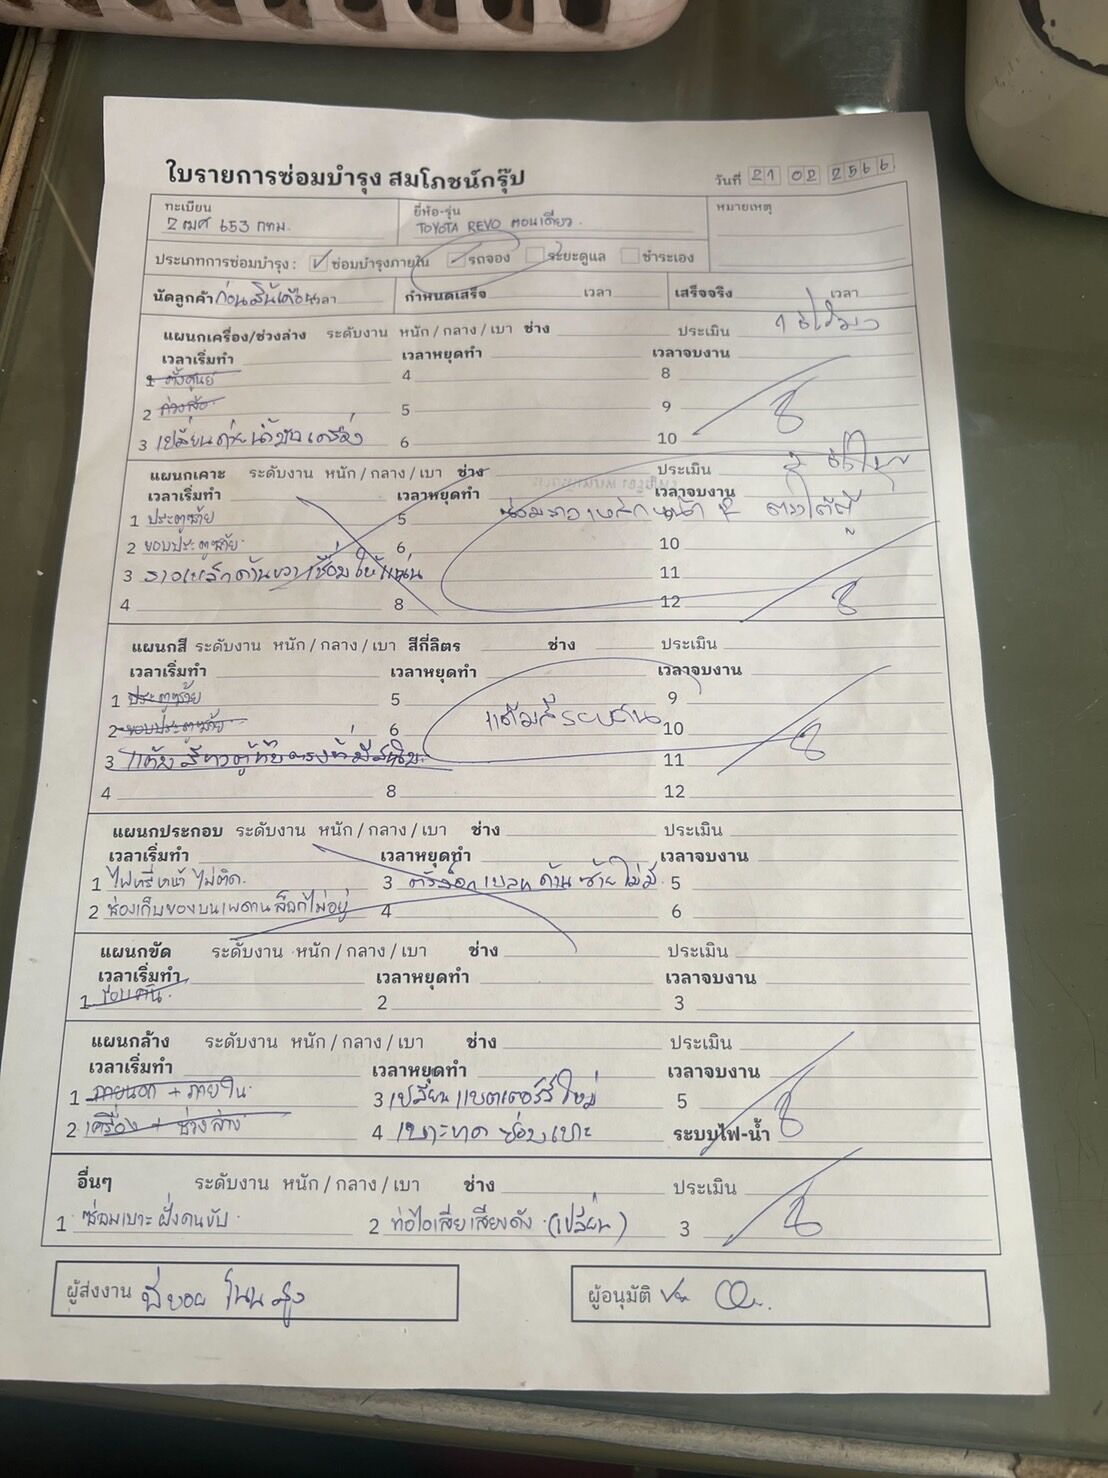 ใบรายการซ่อมบำรุง สมโภชน์กรุ๊ป
วันที่ 21 02 2566
ทะเบียน ยี่ห้อ-รุ่น หมายเหตุ
2 ฒศ 653 กทม. TOYOTA REVO ตอนเดียว
ประเภทการซ่อมบำรุง : ซ่อมบำรุงภายใน รถจอง ระยะดูแล ชำระเอง
นัดลูกค้า ก่อนสิ้นเดือน เวลา กำหนดเสร็จ เวลา เสร็จจริง เวลา
แผนกเครื่อง/ช่วงล่าง ระดับงาน หนัก / กลาง / เบา ช่าง ประเมิน
เวลาเริ่มทำ เวลาหยุดทำ เวลาจบงาน
1 ตั้งศูนย์ 4 8
2 ถ่วงล้อ 5 9
3 เปลี่ยนถ่ายน้ำมันเครื่อง 6 10
แผนกเคาะ ระดับงาน หนัก / กลาง / เบา ช่าง ประเมิน
เวลาเริ่มทำ เวลาหยุดทำ เวลาจบงาน
1 ประตูซ้าย 5
2 ขอบประตูซ้าย 6 10
3 ราวเหล็กด้านขวาเชื่อมให้แน่น 11
4 8 12
แผนกสี ระดับงาน หนัก / กลาง / เบา สีกี่ลิตร ช่าง ประเมิน
เวลาเริ่มทำ เวลาหยุดทำ เวลาจบงาน
1 ประตูซ้าย 5 9
2 ขอบประตูซ้าย 6 แต้มสีรอบคัน 10
3 11
4 8 12
แผนกประกอบ ระดับงาน หนัก / กลาง / เบา ช่าง ประเมิน
เวลาเริ่มทำ เวลาหยุดทำ เวลาจบงาน
1 ไฟหรี่หน้า ไม่ติด. 3 ด้านซ้ายไม่มี 5
2 ช่องเก็บของบนเพดานล็อกไม่อยู่ 4 6
แผนกขัด ระดับงาน หนัก / กลาง / เบา ช่าง ประเมิน
เวลาเริ่มทำ เวลาหยุดทำ เวลาจบงาน
1 รอบคัน. 2 3
แผนกล้าง ระดับงาน หนัก / กลาง / เบา ช่าง ประเมิน
เวลาเริ่มทำ เวลาหยุดทำ เวลาจบงาน
1 ภายนอก + ภายใน 3 เปลี่ยนแบตเตอร์รี่ใหม่ 5
2 เครื่อง + ช่วงล่าง 4 เบาะขาด ซ่อมเบาะ ระบบไฟ-น้ำ
อื่นๆ ระดับงาน หนัก / กลาง / เบา ช่าง ประเมิน
1 ซ่อมเบาะฝั่งคนขับ 2 ท่อไอเสียเสียงดัง (เปลี่ยน) 3
ผู้ส่งงาน ผู้อนุมัติ